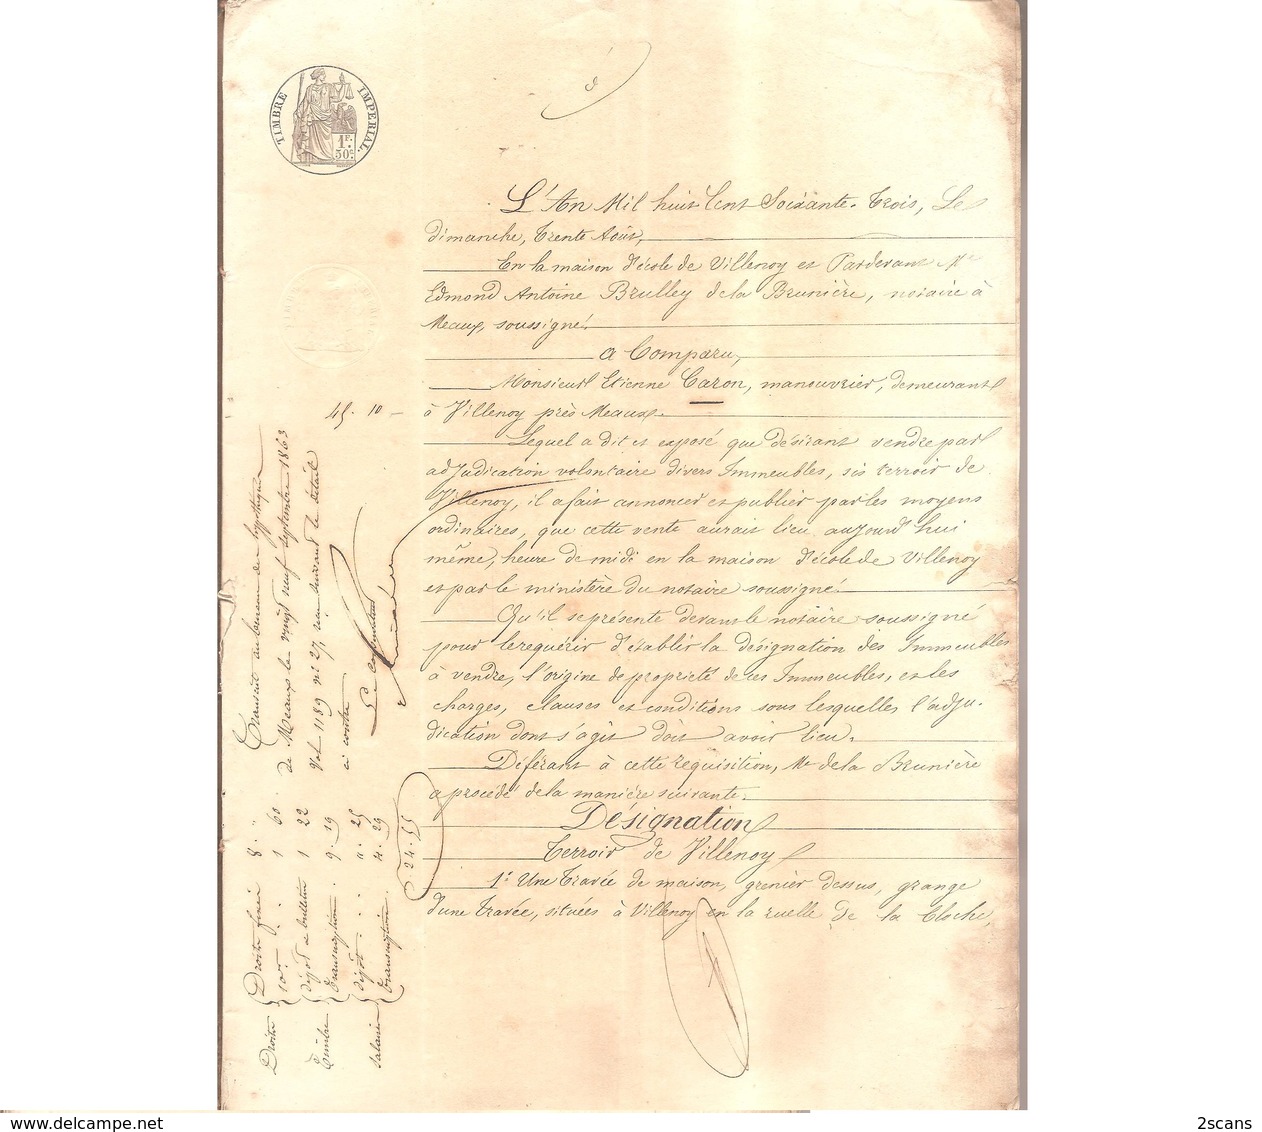 TIMBRE IMPERIAL.
1F.
50c.
L'An Mil huit Cent Soixante-Trois, Le
dimanche, Trente Août,
En la maison d'école de Villenoy et Pardevant Me
Edmond Antoine Brulley de la Brunière, notaire à
Meaux, soussigné.
a Comparu,
Monsieur Etienne Caron, manouvrier, demeurant
à Villenoy près Meaux.
Lequel a dit et exposé que désirant vendre par
adjudication volontaire divers Immeubles, sis terroir de
Villenoy, il a fait annoncer et publier par les moyens
ordinaires, que cette vente aurait lieu aujourd'hui
même, heure de midi en la maison d'école de Villenoy
et par le ministère du notaire soussigné.
Qu'il se présente devant le notaire soussigné
pour le requérir d'établir la désignation des Immeubles
à vendre, l'origine de propriété de ces Immeubles, et les
charges, clauses et conditions sous lesquelles l'adju-
dication dont s'agit doit avoir lieu.
Déférant à cette réquisition, Me de la Brunière
a procédé de la manière suivante.
Désignation
Terroir de Villenoy
1° Une Travée de maison, grenier dessus, grange
d'une travée, situées à Villenoy en la ruelle de la Cloche,
45. 10 -
Transcrit au bureau des hypothèques
de Meaux le vingt neuf septembre 1863
Vol 1189 n° 27, suivant le détail
ci contre
Le conservateur
Droits Droits fixes 8 . "
10me . . 1 60
Timbre dépôt et bulletin 1 22
Transcription . 9. 19
Salaire dépôt . . . ". 25
Transcription. 4. 29
24.55
2scans